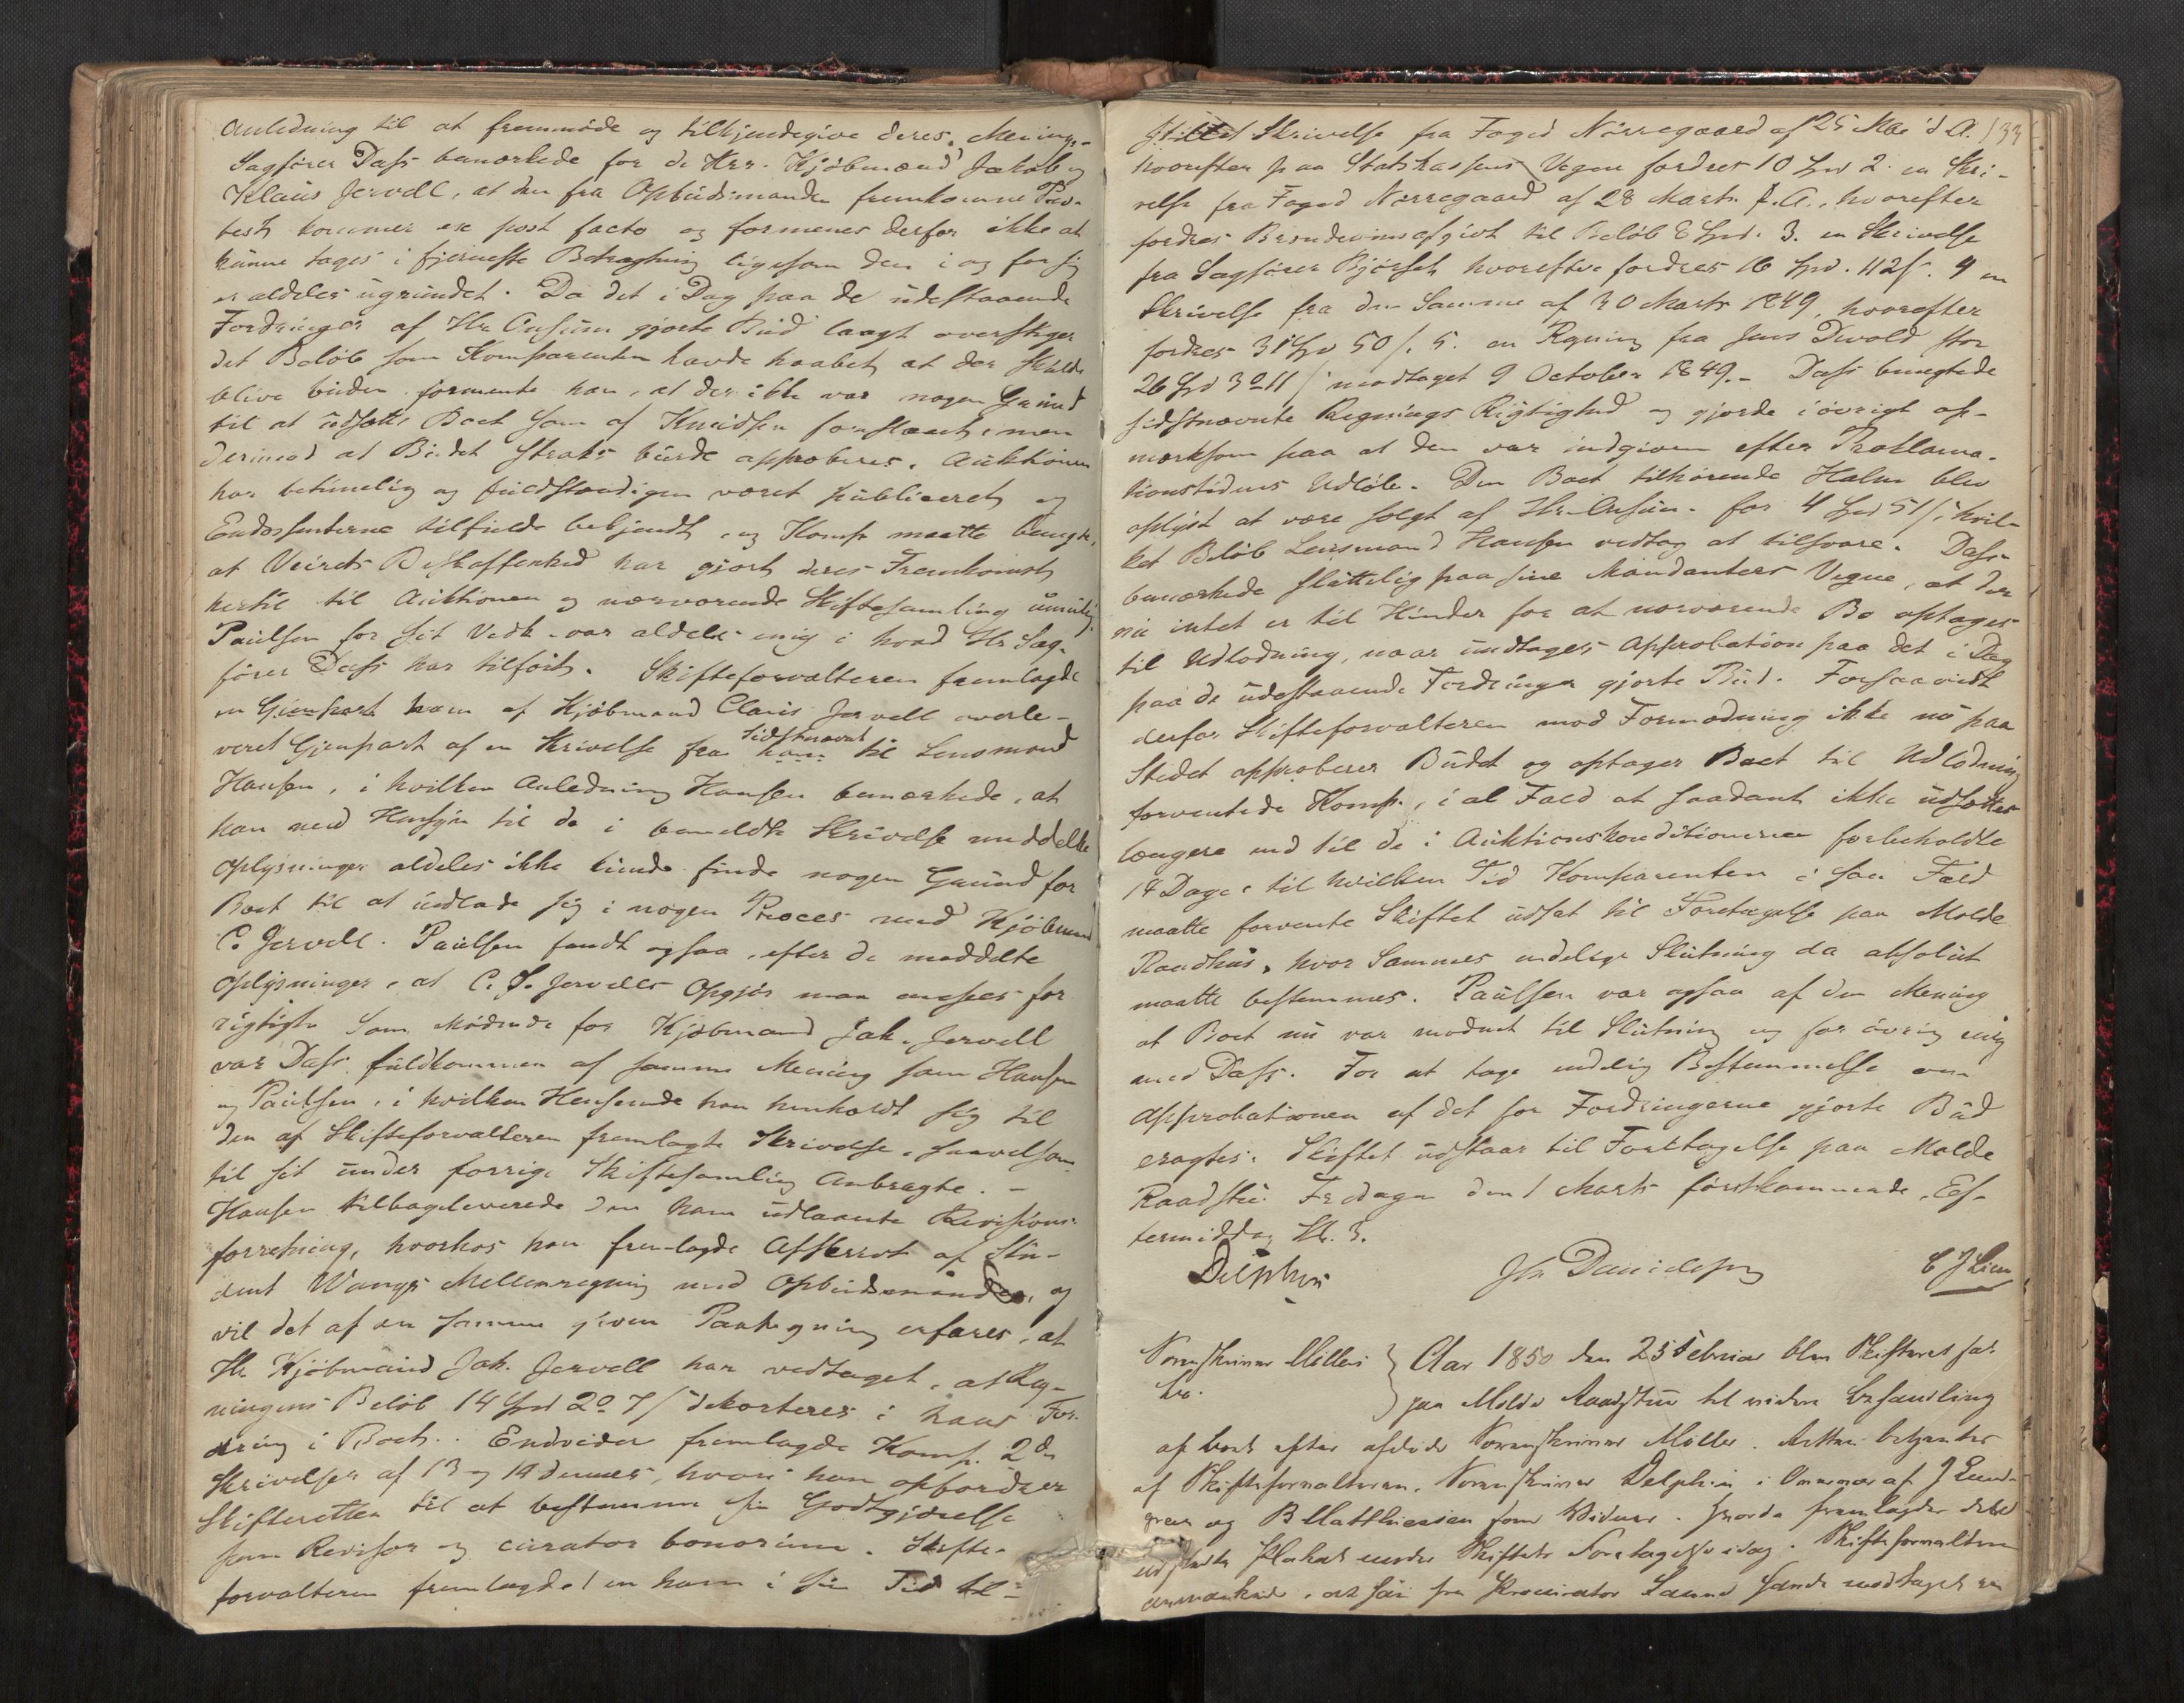 Anledning til at fremmøde og tilkjendegive deres Mening.
Sagfører Dass bemærkede for de Hrr. Kjøbmænd Jakob og
Klaus Jervell, at den fra Opbudsmanden fremkomne Pro-
test kommer ex post facto og formenes derfor ikke at
kunne tages i fjerneste Betragtning ligesom den i og for sig
er aldeles ugrundet. Da det i Dag paa de udestaaende
Fordringer af Hr. Onsum gjorte Bud langt overstiger
det Beløb som Komparenten havde haabet at der skulde
blive buden formente han, at der ikke var nogen Grund
til at udsætte Boet som af Knudsen foreslaaet, men
derimod at Budet straks burde approberes. Auktionen
har betimelig og fuldstændigen været publiceret og
tilfulde bekjendt, og Komp. maatte benegte,
at Veirets Beskaffenhed har gjort deres Fremkomst
hertil til Auktionen og nærværende Skiftesamling umulig.
Paulsen for sit Vedk. var aldeles enig i hvad Hr. Sag-
fører Dass har tilført. Skifteforvalteren fremlagde
en Gjenpart ham af Kjøbmand Claus Jervell overle-
veret Gjenpart af en Skrivelse fra sidstnævnte ham til Lensmand
Hansen, i hvilken Anledning Hansen bemærkede, at
han med Hensyn til de i bemeldte Skrivelse meddelte
Oplysninger aldeles ikke kunde finde nogen Grund for
Boet til at indlade sig i nogen Proces med Kjøbmand
C. Jervell. Paulsen fandt ogsaa, efter de meddelte
Oplysninger, at C. J. Jervells Opgjør maa ansees for
rigtigt. Som Mødende for Kjøbmand Jak. Jervell
var Dass fuldkommen af samme Mening som Hansen
og Paulsen, i hvilken Henseende han henholdt sig til
den af Skifteforvalteren fremlagte Skrivelse, saavelsom
til sit under forrige Skiftesamling Anbragte. -
Hansen tilbageleverede den ham udlaante Revisions-
forretning, hvorhos han fremlagde Afskrivt af Stu-
dent Wangs Mellemregning med Opbudsmanden, og
vil det af en samme given Paategning erfares, at
Hr. Kjøbmand Jak. Jervell har vedtaget, at Reg-
ningens Beløb 14 Spd 2 o 7 s dekorteres i hans For-
dring i Boet. Endvidere fremlagde Komp. 2de
Skrivelser af 13 og 14 dennes, hvori han opfordrer
Skifteretten til at bestemme sin Godtgjørelse
som Revisor og curator bonorum. Skifte-
forvalteren fremlagde 1 en ham i sin Tid til-
stillet Skrivelse fra Foged Nørregaard af 25 Mai d. A. 133
hvorefter paa Statskassens Vegne fordres 10 Spd 2. en Skri-
velse fra Foged Nørregaard af 28 Marts f. A., hvorefter
fordres Brændevinsafgivt til Beløb 8 Spd. 3. en Skrivelse
fra Sagfører Bjørset hvorefter fordres 16 Spd. 112 s. 4 en
Skrivelse fra den Samme af 30 Marts 1849, hvorefter
fordres 31 Spd 50 s. 5. en Regning fra Jens Devold stor
26 Spd 3 o 11 s modtaget 9 October 1849.- Dass benegtede
sidstnævnte Regnings Rigtighed og gjorde iøvrigt op-
mærksom paa at den var indgiven efter Proklama-
tionstidens Udløb. Den Boet tilhørende Halm blev
oplyst at være solgt af Hr. Onsum for 4 Spd 51 s, hvil-
ket Beløb Lensmand Hansen vedtog at tilsvare. Dass
bemærkede sluttelig paa sine Mandanters Vegne, at der
nu intet er til Hinder for at nærværende Bo optages
til Udlodning, naar undtages Approbation paa det i Dag
paa de udestaaende Fordringer gjorte Bud. Forsaavidt
derfor Skifteforvalteren mod Formodning ikke nu paa
Stedet approberer Budet og optager Boet til Udlodning
forventede Komp., i al Fald at saadant ikke udsættes
længere end til de i Auktionskonditionerne forbeholdte
14 Dage, til hvilken Tid Komparenten i saa Fald
maatte forvente Skiftet udsat til Foretagelse paa Molde
Raadhus, hvor Sammes endelige Slutning da absolut
maatte bestemmes. Paulsen var ogsaa af den Mening
at Boet nu var modnet til Slutning og for øvrig enig
med Dass. For at tage endelig Bestemmelse om
Approbationen af det for Fordringerne gjorte Bud
eragtes: Skiftet udstaar til Foretagelse paa Molde
Raadstue Fredagen den 1 Marts førstkommende, Ef-
termiddag Kl. 3.
Delphin Jfr Danielsen C J Lien
Sorenskriver Møllers
Bo.
Aar 1850 den 25 Februar blev Skifteret sat
paa Molde Raadstue til videre Behandling
af Boet efter afdøde Sorenskriver Møller. Retten betjentes
af Skifteforvalteren, Sorenskriver Delphin i Overvær af J Lund-
green og B Matthiesen som Vidner. Hvorda fremlagdes
udstedte Plakat under Skiftets Foretagelse idag. Skifteforvalteren
anmærkede, at han fra Procurator Lamm havde modtaget en